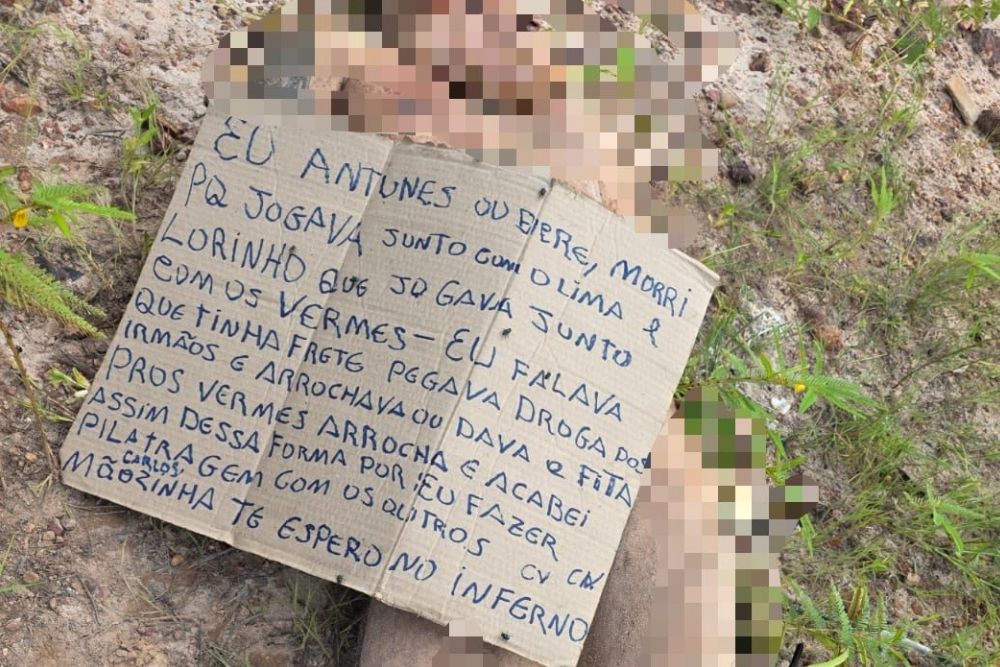 EU ANTUNES OU BERE, MORRI
PQ JOGAVA JUNTO COM O LIMA e
LORINHO QUE JOGAVA JUNTO
COM OS VERMES - EU FALAVA
QUE TINHA FRETE PEGAVA DROGA DOS
IRMÃOS E ARROCHAVA OU DAVA e FITA
PROS VERMES ARROCHA E ACABEI
ASSIM DESSA FORMA POR EU FAZER
PILATRAGEM COM OS OUTROS CV
CARLOS
MÃOZINHA TE ESPERO NO INFERNO